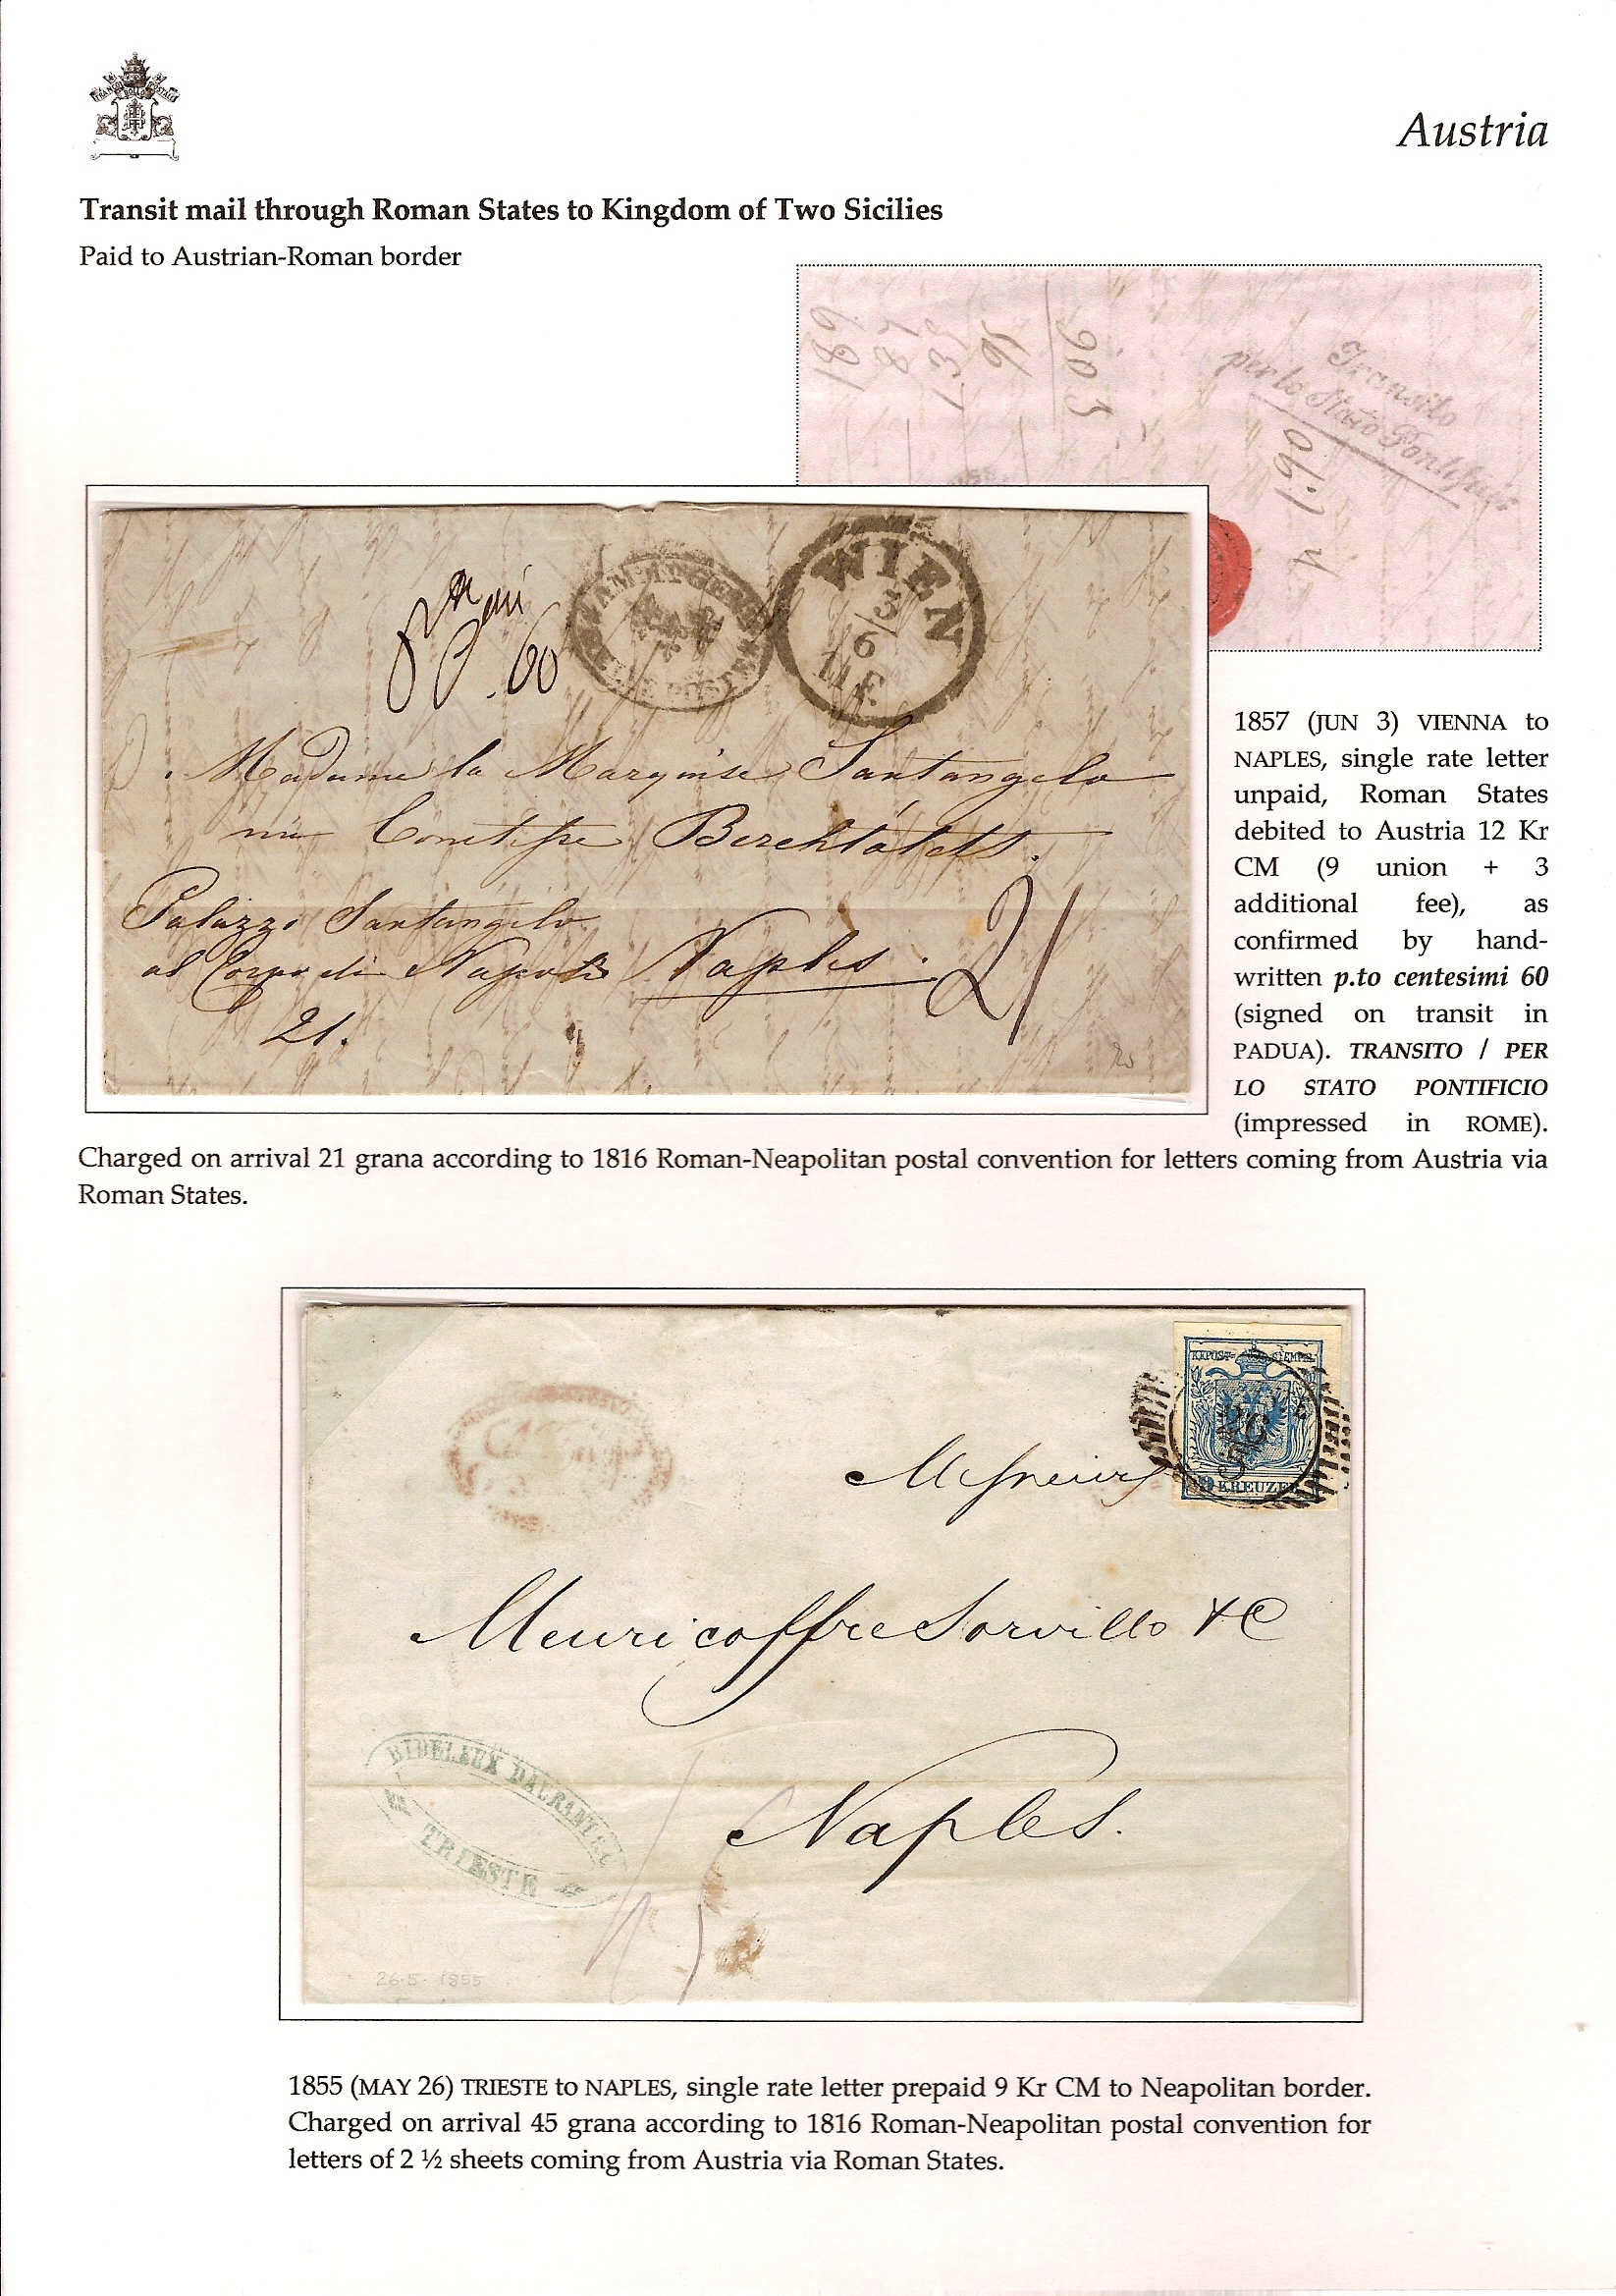 FRANCO BOLLO POSTALE
Austria
Transit mail through Roman States to Kingdom of Two Sicilies
Paid to Austrian-Roman border
Transito
per lo Stato Pontificio
WIEN
3
6
II.F.
60
Madame la Marquise Santangelo
née Comtesse
Palazzo Santangelo
Naples
21
21.
1857 (JUN 3) VIENNA to
NAPLES, single rate letter
unpaid, Roman States
debited to Austria 12 Kr
CM (9 union + 3
additional fee), as
confirmed by hand-
written p.to centesimi 60
(signed on transit in
PADUA). TRANSITO / PER
LO STATO PONTIFICIO
(impressed in ROME).
Charged on arrival 21 grana according to 1816 Roman-Neapolitan postal convention for letters coming from Austria via
Roman States.
KREUZER
26
5
Messieurs
Meuricoffre Sorvillo & C
Naples.
TRIESTE
26-5-1855
1855 (MAY 26) TRIESTE to NAPLES, single rate letter prepaid 9 Kr CM to Neapolitan border.
Charged on arrival 45 grana according to 1816 Roman-Neapolitan postal convention for
letters of 2 ½ sheets coming from Austria via Roman States.